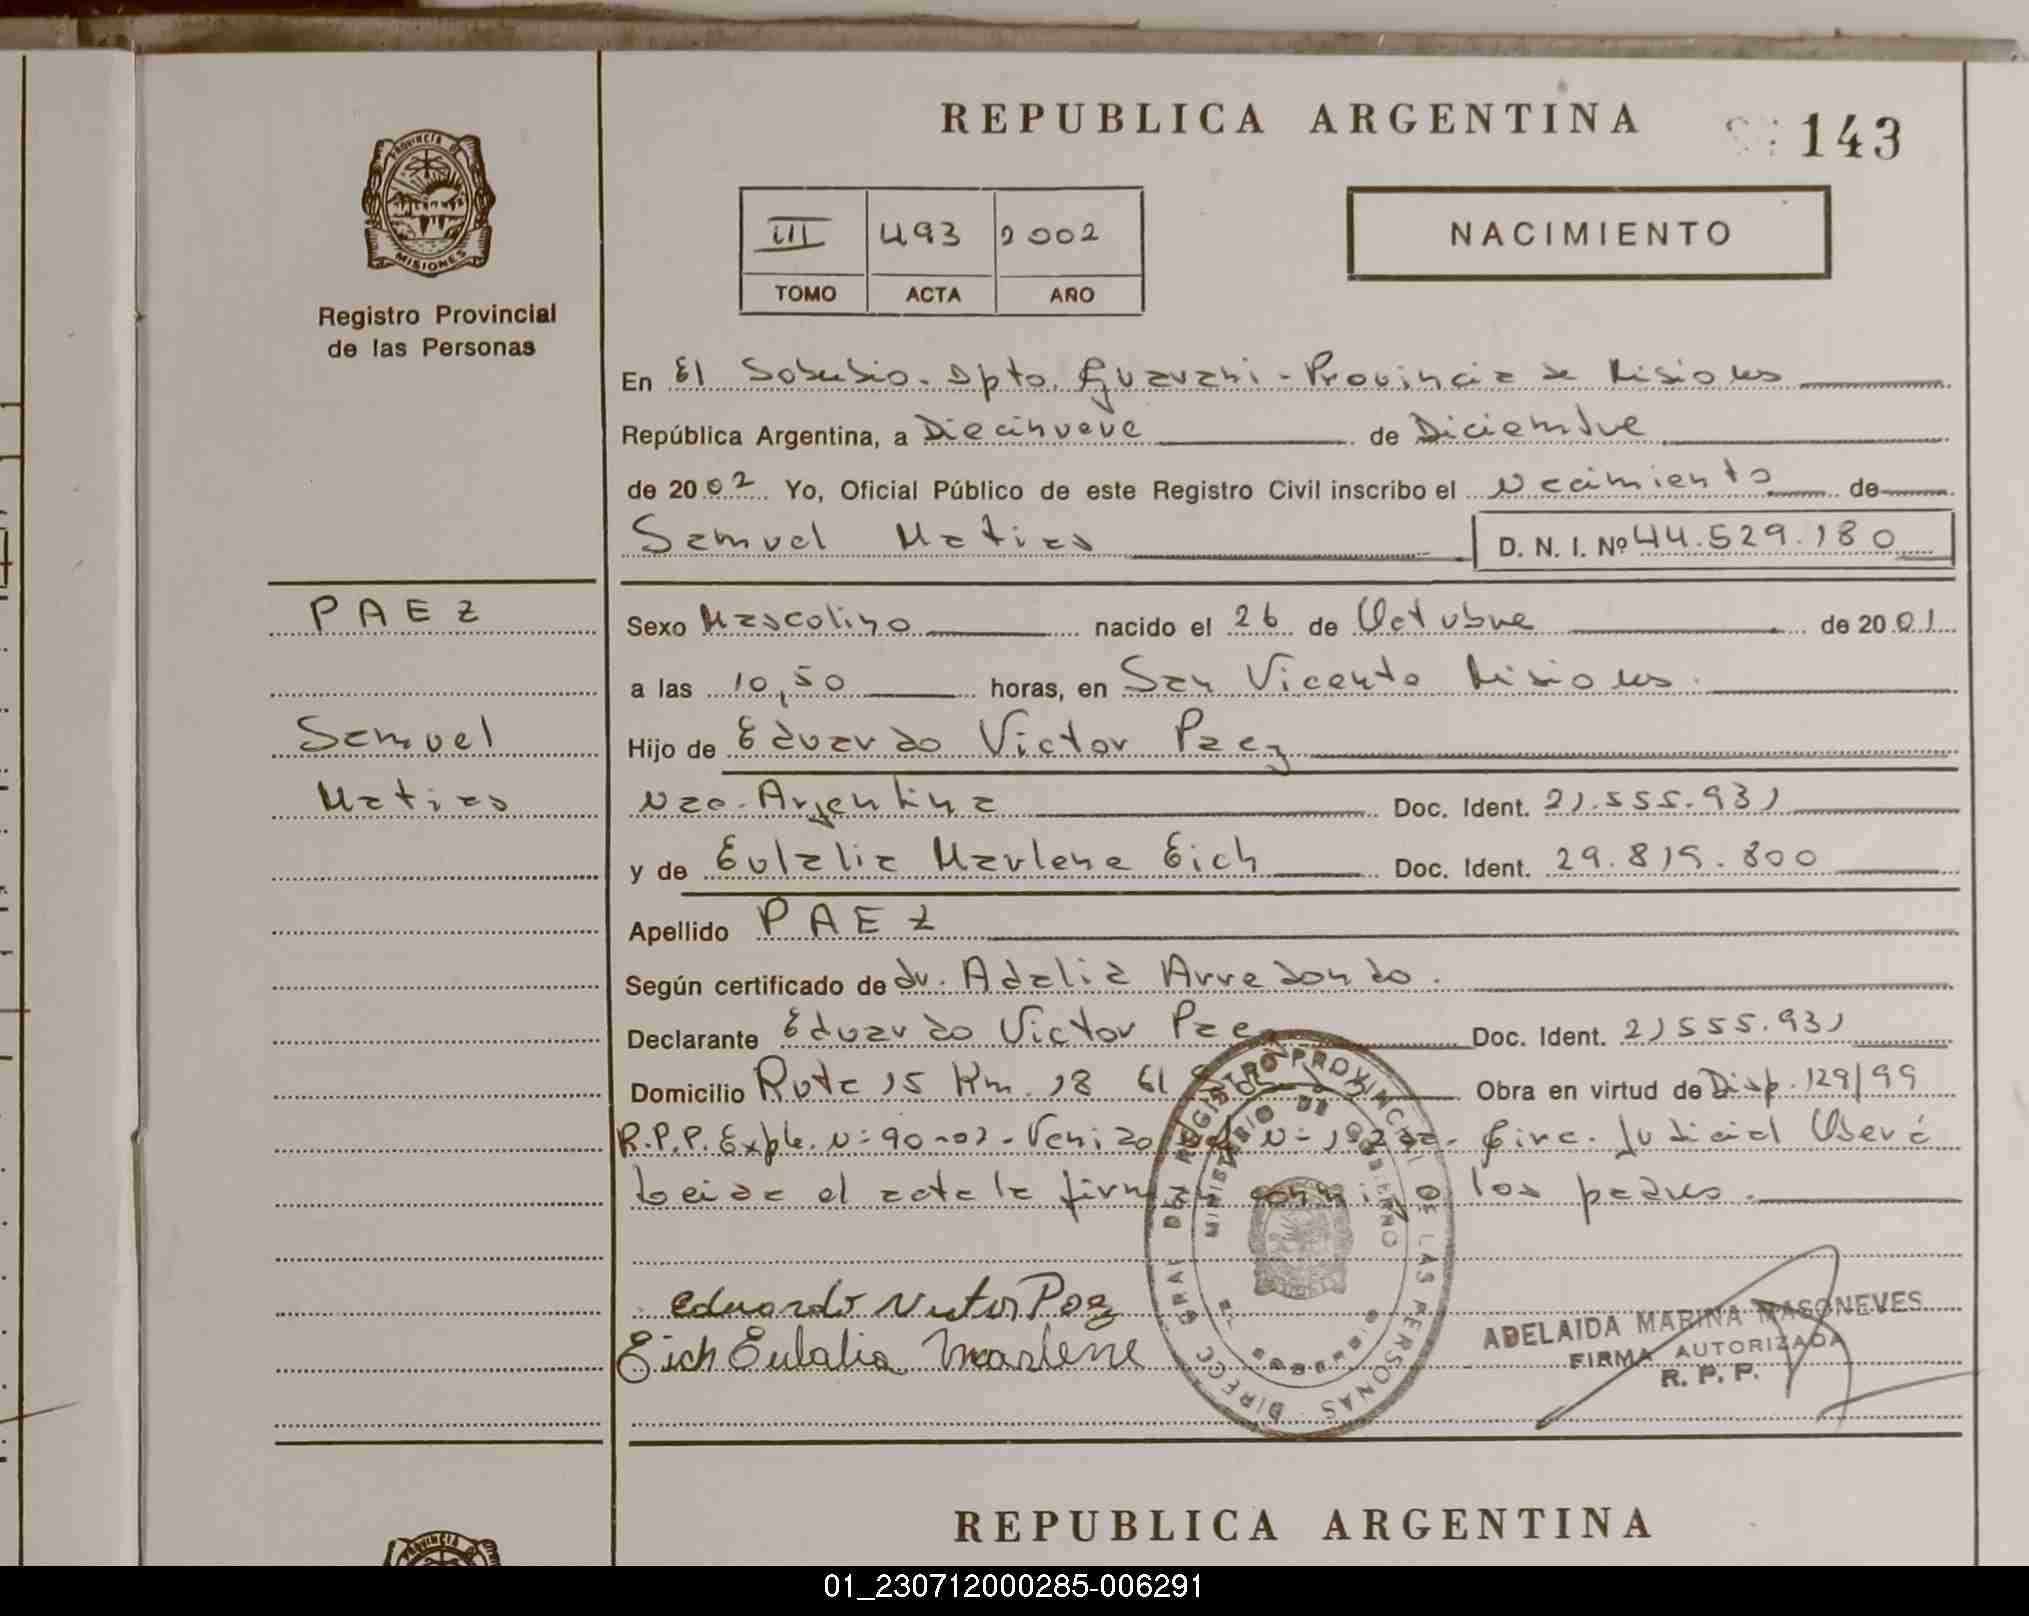 REPUBLICA ARGENTINA
143
PROVINCIA DE
MISIONES
Registro Provincial
de las Personas
III 493 2002
TOMO ACTA AÑO
NACIMIENTO
En El Soberbio. Dpto. Guarani - Provincia de Misiones
República Argentina, a Diecinueve de Diciembre
de 2002 Yo, Oficial Público de este Registro Civil inscribo el nacimiento de
Samuel Matias D. N. I. Nº 44.529.180
PAEZ
Sexo Masculino nacido el 26 de Octubre de 2001
a las 10,50 horas, en San Vicente Misiones.
Samuel
Hijo de Eduardo Victor Paez
Matias
Nac. Argentina Doc. Ident. 21.555.931
y de Eulalia Marlene Eich Doc. Ident. 29.815.800
Apellido PAEZ
Según certificado de dr. Adalia Arredondo.
Declarante Eduardo Victor Paez Doc. Ident. 21555.931
Domicilio Ruta 15 Km. 18 El Obra en virtud de Disp. 129/99
R.P.P. Expte. N= 90-02- Circ. Judicial Oberá
Leida el acta la firman conmigo los padres.
Eduardo Victor Paez
Eich Eulalia Marlene
DIRECC GRAL DEL REGISTRO PROVINCIAL DE LAS PERSONAS
MINISTERIO DE GOBIERNO
MISIONES
ADELAIDA MARINA MASONEVES
FIRMA AUTORIZADA
R. P. P.
REPUBLICA ARGENTINA
PROVINCIA DE
01_230712000285-006291